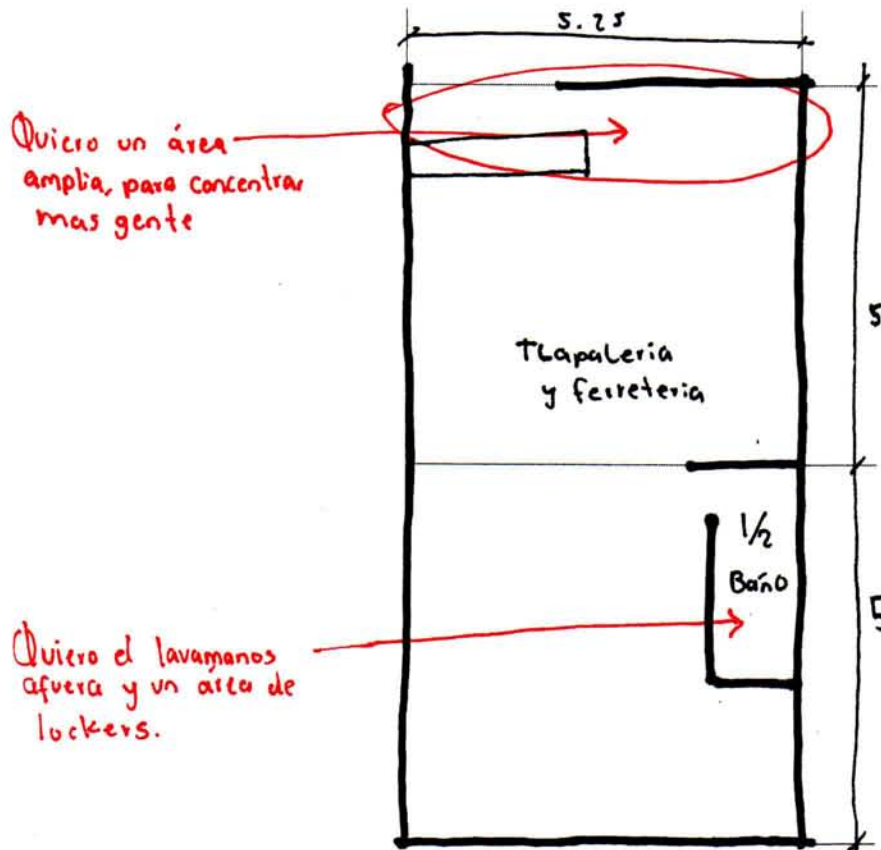 5.25
Quiero un área
amplia, para concentrar
mas gente
5
Tlapaleria
y ferreteria
1/2
Baño
5
Quiero el lavamanos
afuera y un area de
lockers.